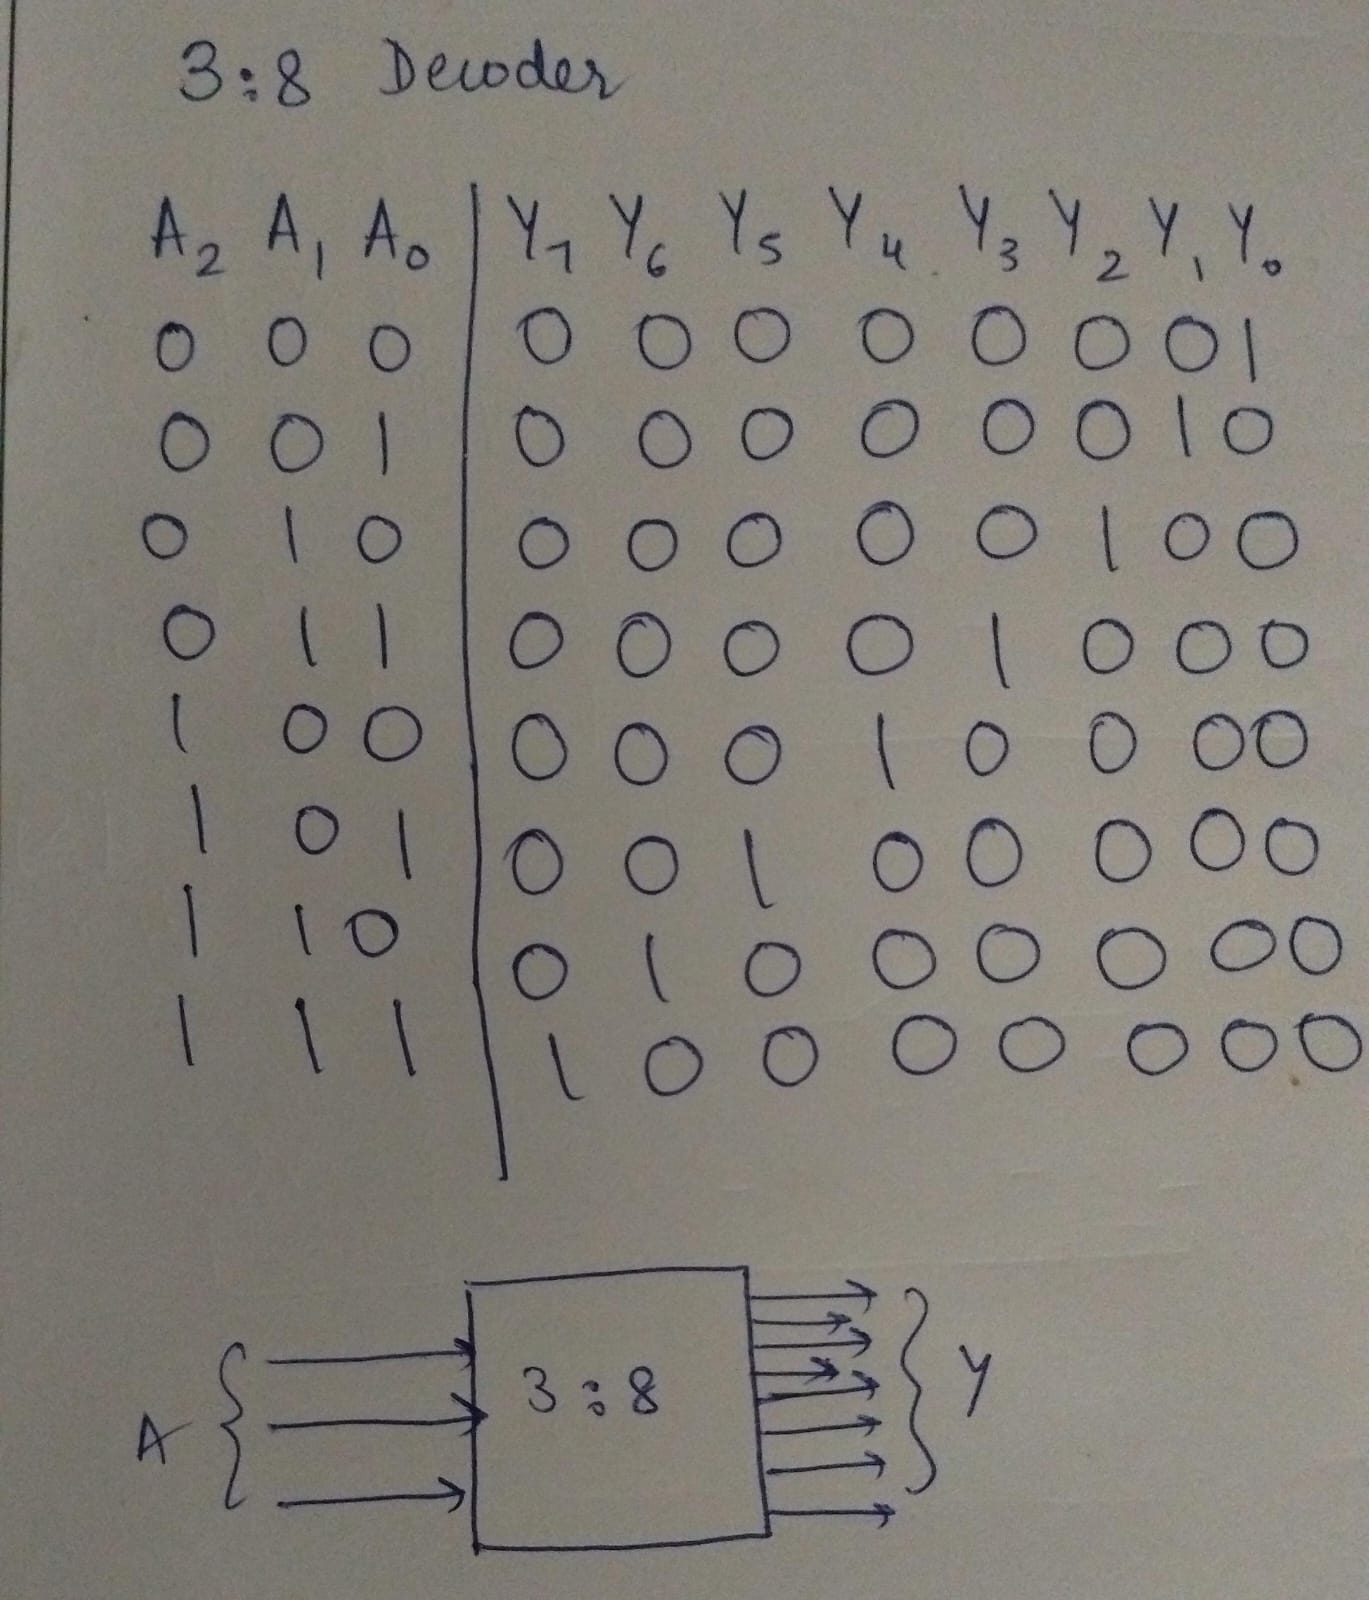 3:8 Decoder
A₂ A₁ A₀ Y₇ Y₆ Y₅ Y₄ Y₃ Y₂ Y₁ Y₀
0 0 0 0 0 0 0 0 0 0 1
0 0 1 0 0 0 0 0 0 1 0
0 1 0 0 0 0 0 0 1 0 0
0 1 1 0 0 0 0 1 0 0 0
1 0 0 0 0 0 1 0 0 0 0
1 0 1 0 0 1 0 0 0 0 0
1 1 0 0 1 0 0 0 0 0 0
1 1 1 1 0 0 0 0 0 0 0
A 3:8 Y